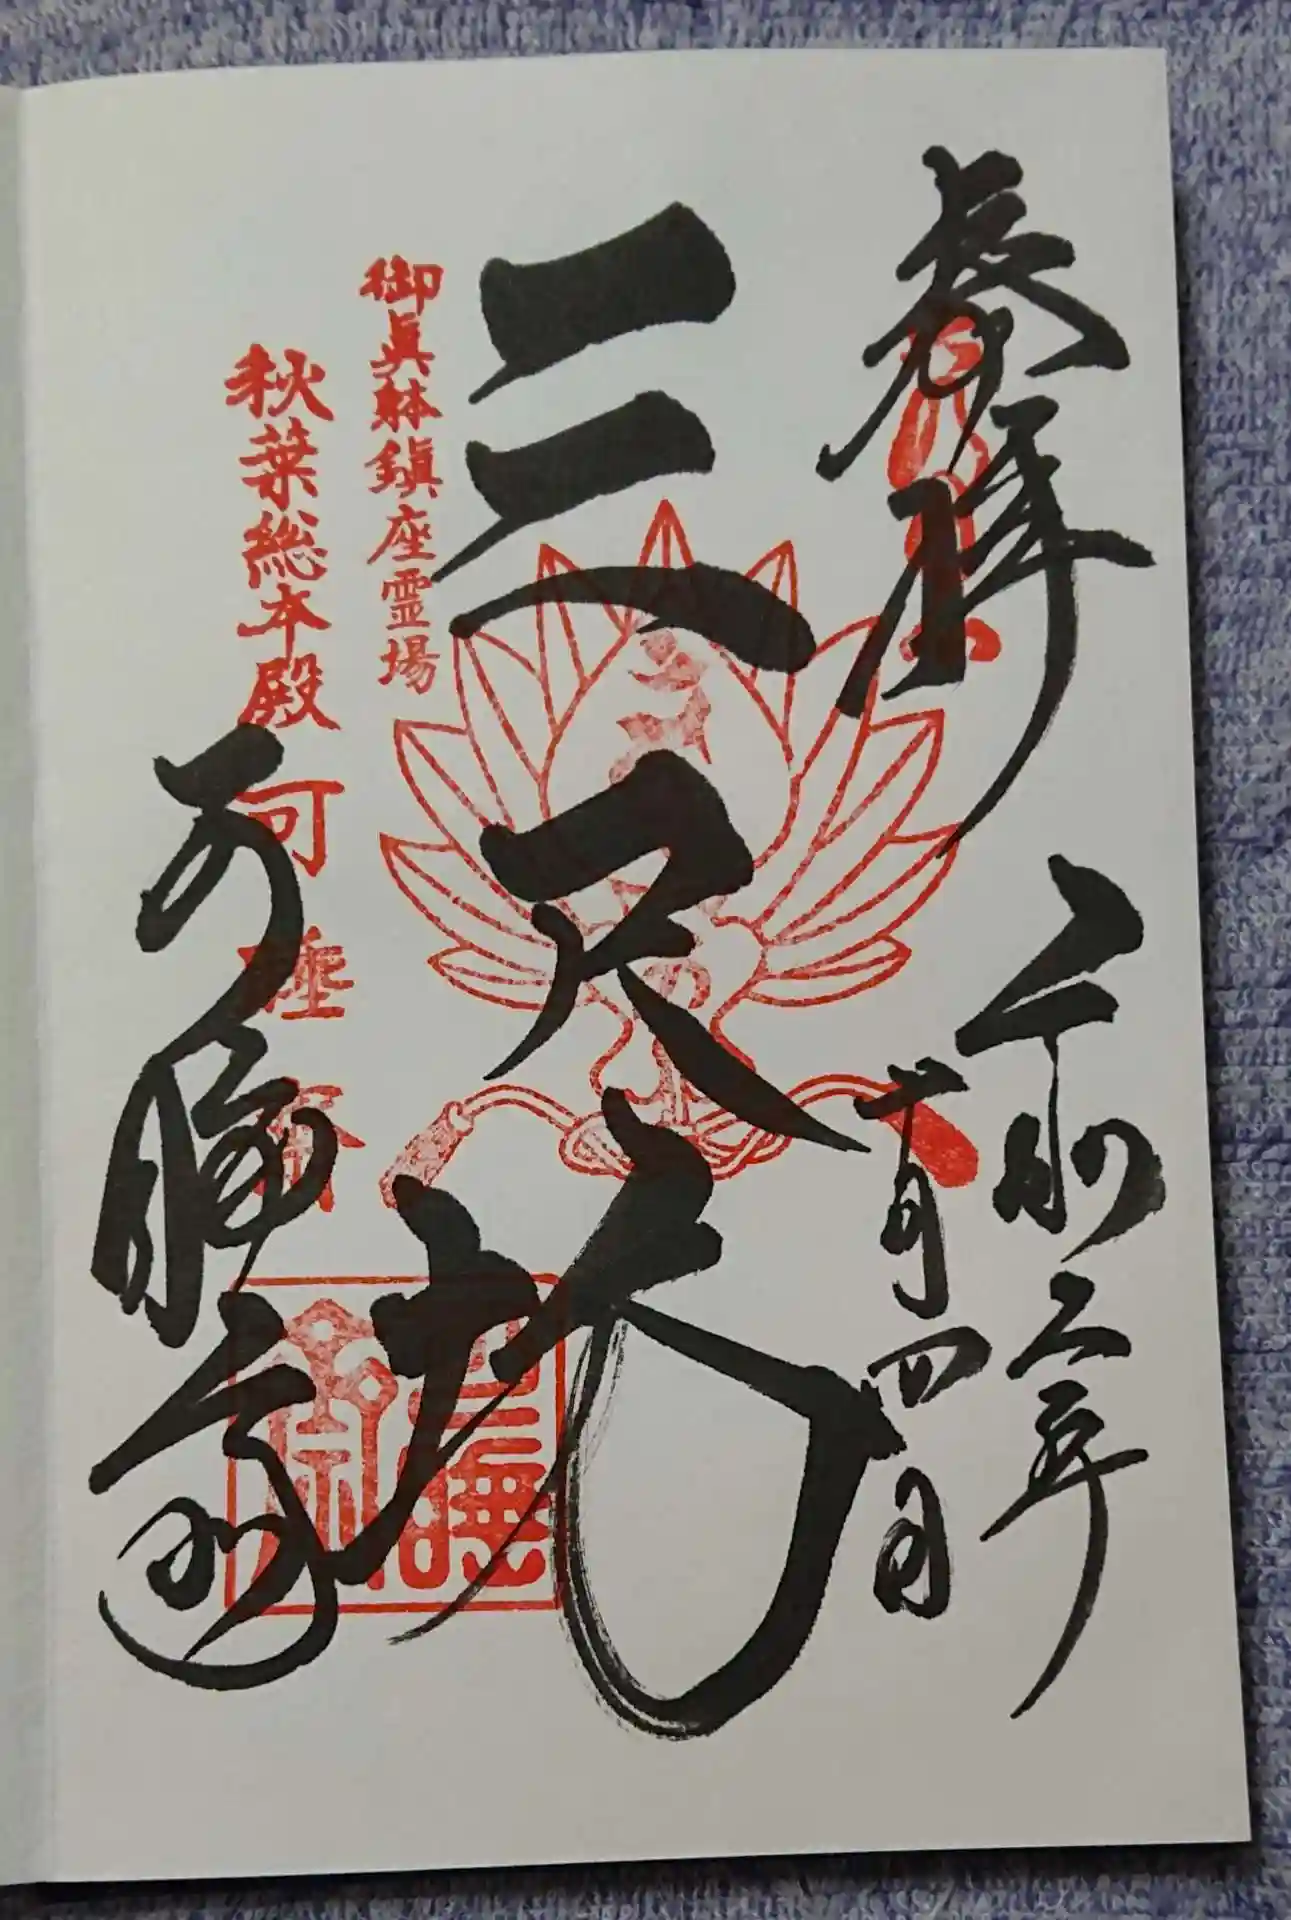 奉拝
令和二年
十月四日
三尺坊
御眞躰鎮座霊場
秋葉総本殿可睡斎
可睡齋